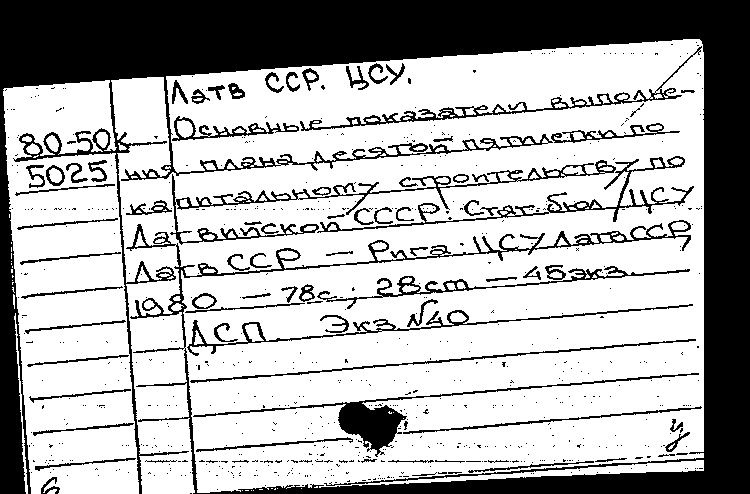 Латв ССР. ЦСУ.
80-50к Основные показатели выполне-
5025 ния плана десятой пятилетки по
капитальному строительству по
Латвийской СССР: Стат. бюл / ЦСУ
Латв ССР — Рига: ЦСУ Латв ССР,
1980 — 78с.; 28cm — 45экз.
ДСП Экз №40
у
6